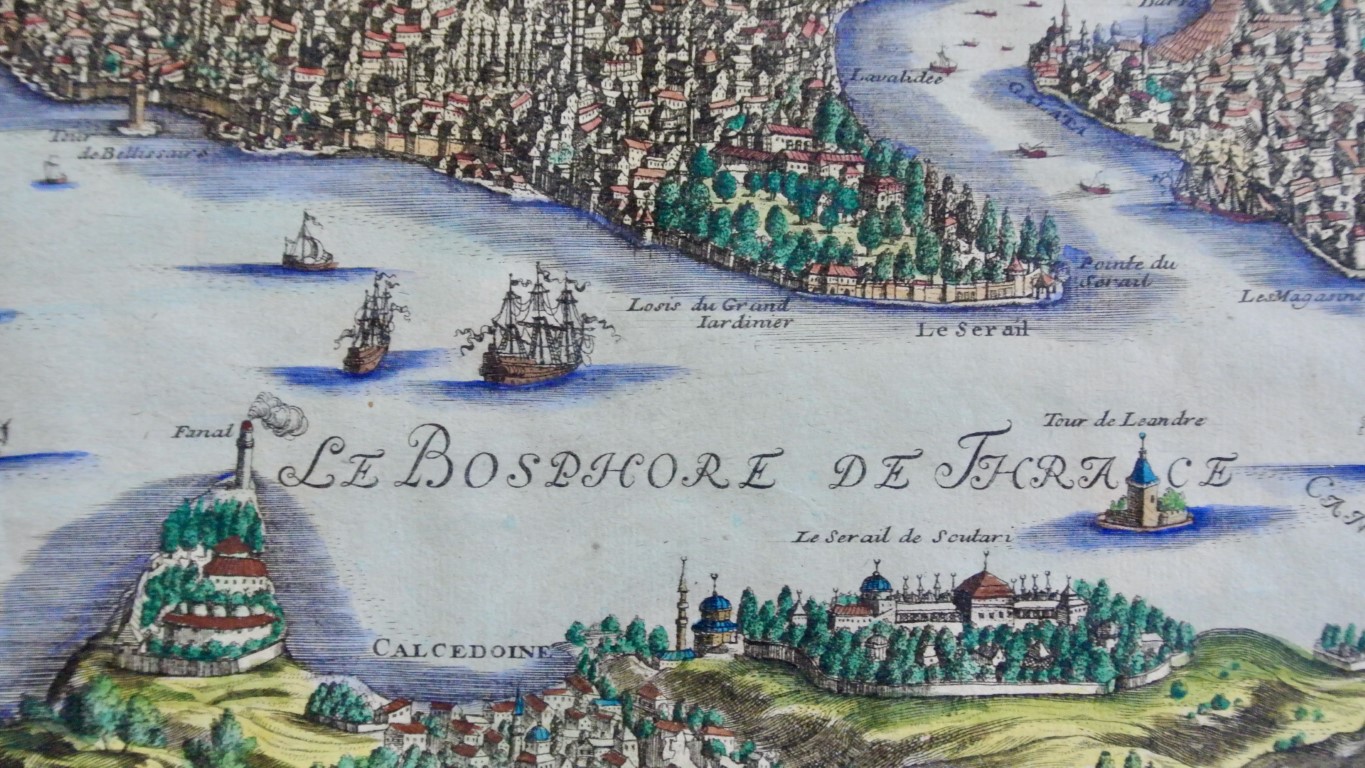 Lavalidee
GALATA
Tour
de Bellissaire
Pointe du
Serail
Losis du Grand
Iardinier
Le Serail
Les Magasins
Fanal
Tour de Leandre
LE BOSPHORE DE THRACE
Le Serail de Scutari
CALCEDOINE